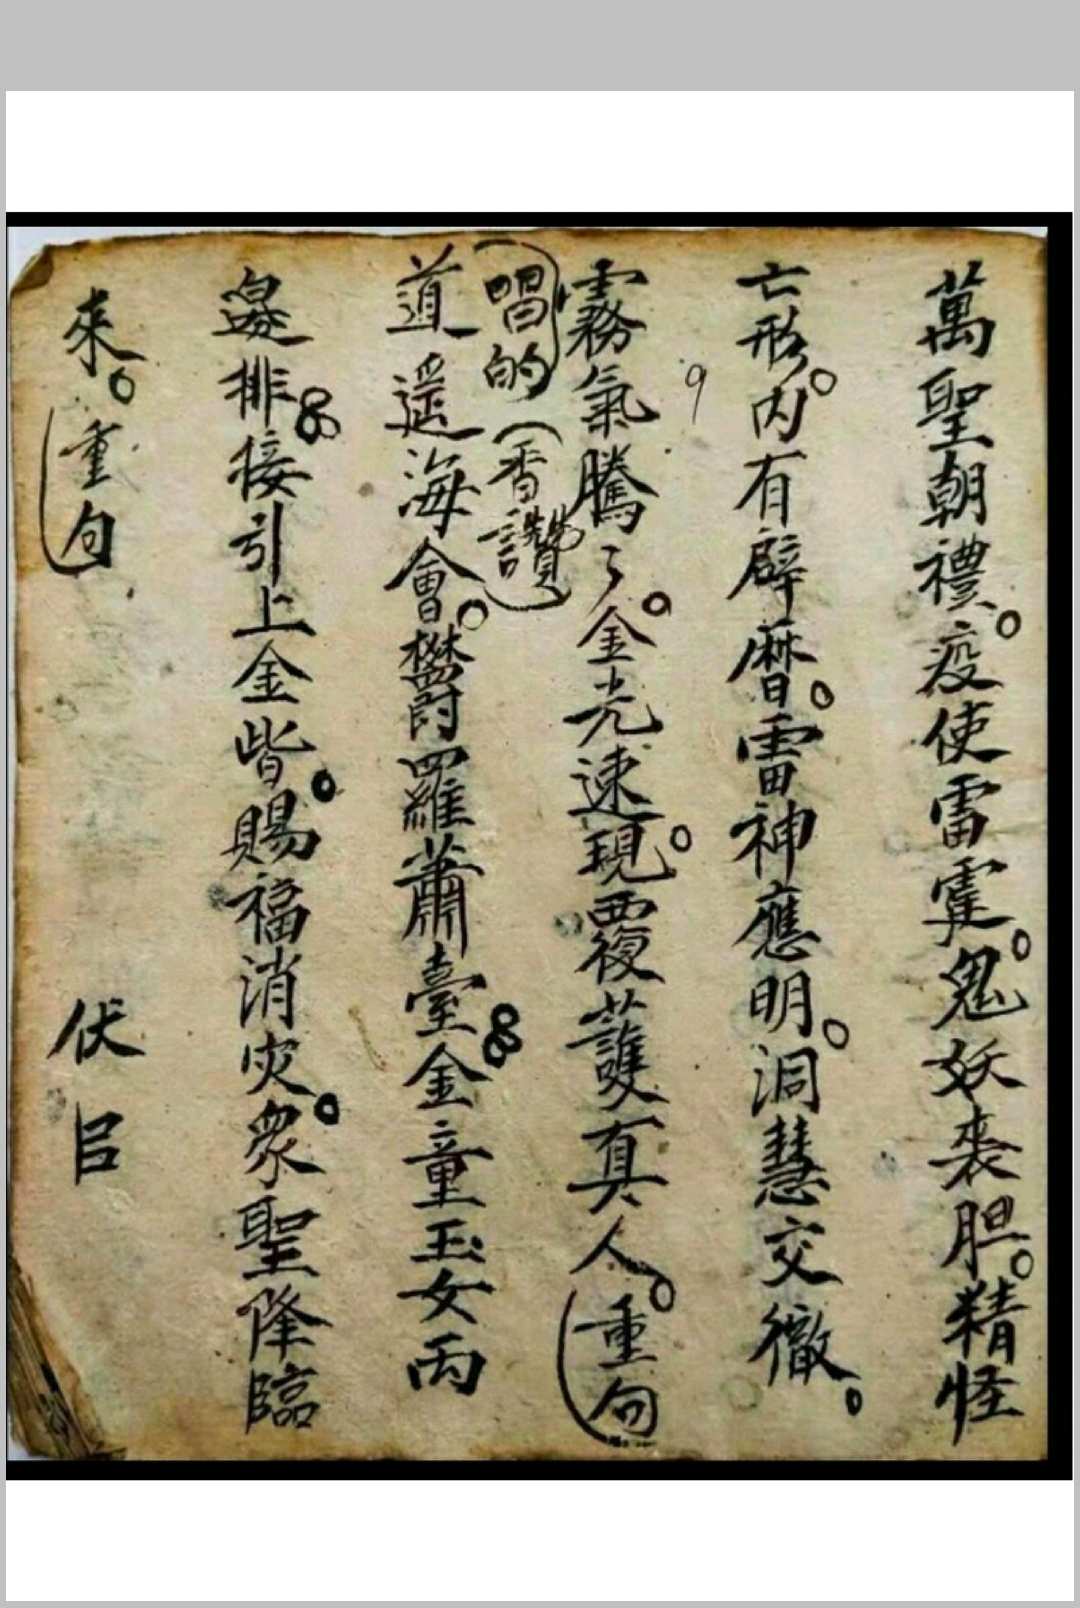 萬聖朝禮。疫使雷霆。鬼妖喪胆。精怪
亡形。内有辟曆。雷神應明。洞慧交徹。
9
霧氣騰々。金光速現。覆護真人。重句
(唱的(香讚)
道遥海會。欝羅蕭臺。金童玉女両
邉排。接引上金階。賜福消灾。衆聖降臨
來。重句 伏㠯